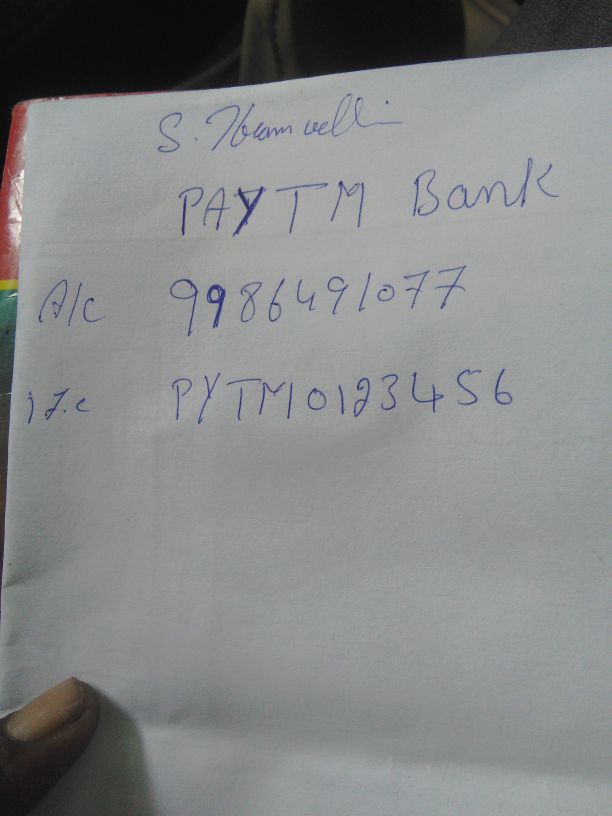 S.
PAYTM Bank
A/c 9986491077
i f.c PYTM0123456